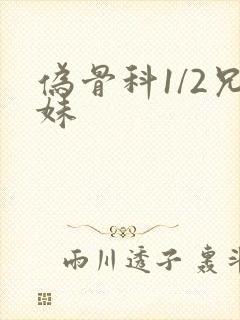 偽骨科1/2兄
妹
雨川透子 轰